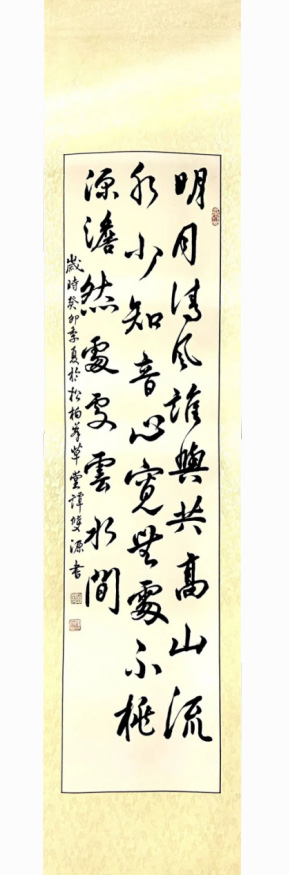 明月清风谁與共高山流
水少知音心寬無處不桃
源澹然處處雲水間
歲時癸卯季夏於松柏峯草堂譚雙源书